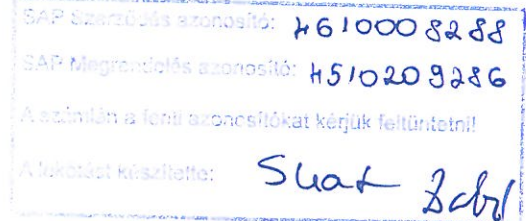 SAP Szerződés azonosító: 4610008288
SAP Megrendelés azonosító: 4510209286
A számlán a fenti azonosítókat kérjük feltüntetni!
A lekötést készítette: